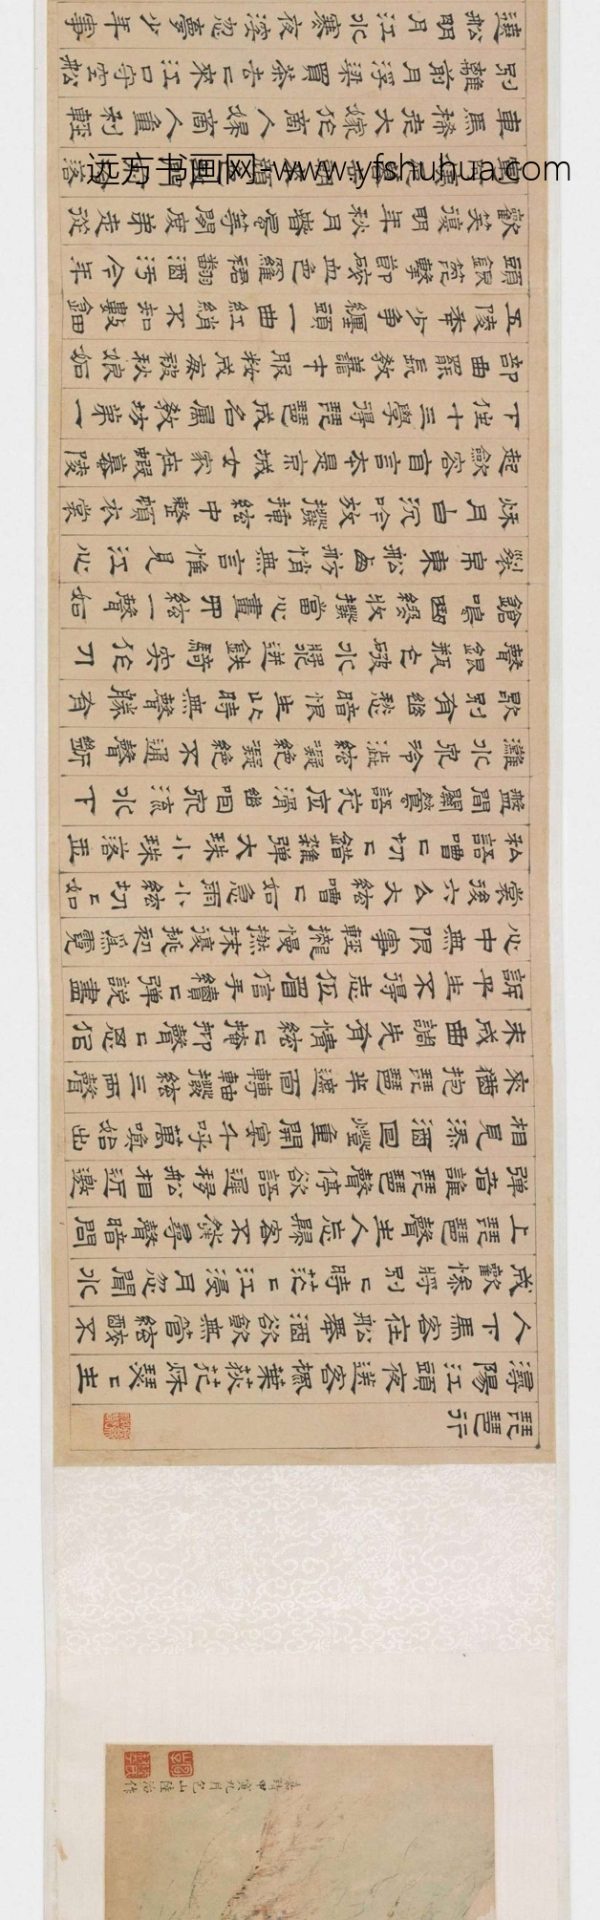 琵琶行
潯陽江頭夜送客楓葉荻花秋瑟〻主
人下馬客在船舉酒欲飲無管絃醉不
成歡慘將別〻時茫〻江浸月忽聞水
上琵琶聲主人忘歸客不發尋聲暗問
彈者誰琵琶聲停欲語遲移船相近邀
相見添酒回燈重開宴千呼萬喚始出
來猶抱琵琶半遮面轉軸撥絃三兩聲
未成曲調先有情絃〻掩抑聲〻思似
訴平生不得志低眉信手續〻彈說盡
心中無限事輕攏慢撚抹復挑初爲霓
裳後六么大絃嘈〻如急雨小絃切〻如
私語嘈〻切〻錯雜彈大珠小珠落玉
盤間關鶯語花底滑幽咽泉流水下
灘水泉冷澀絃凝絕凝絕不通聲漸
歇別有幽愁暗恨生此時無聲勝有
聲銀瓶乍破水漿迸鐵騎突作刀
鎗鳴曲終收撥當心畫四絃一聲如
裂帛東船西舫悄無言惟見江心
秋月白沉吟放撥插絃中整頓衣裳
起斂容自言本是京城女家在蝦蟇陵
下住十三學得琵琶成名屬教坊第一
部曲罷長教善才服粧成每被秋娘妬
五陵年少爭纏頭一曲紅綃不知數鈿
頭銀篦擊節碎血色羅裙翻酒污今年
歡笑復明年秋月春風等閒度弟走從
落
車馬稀老大嫁作商人婦商人重利輕
別離前月浮梁買茶去〻來江口守空船
遶船明月江水寒夜深忽夢少年事
嘉靖甲寅九月包山陸治作
远方书画网-www.yfshuhua.com